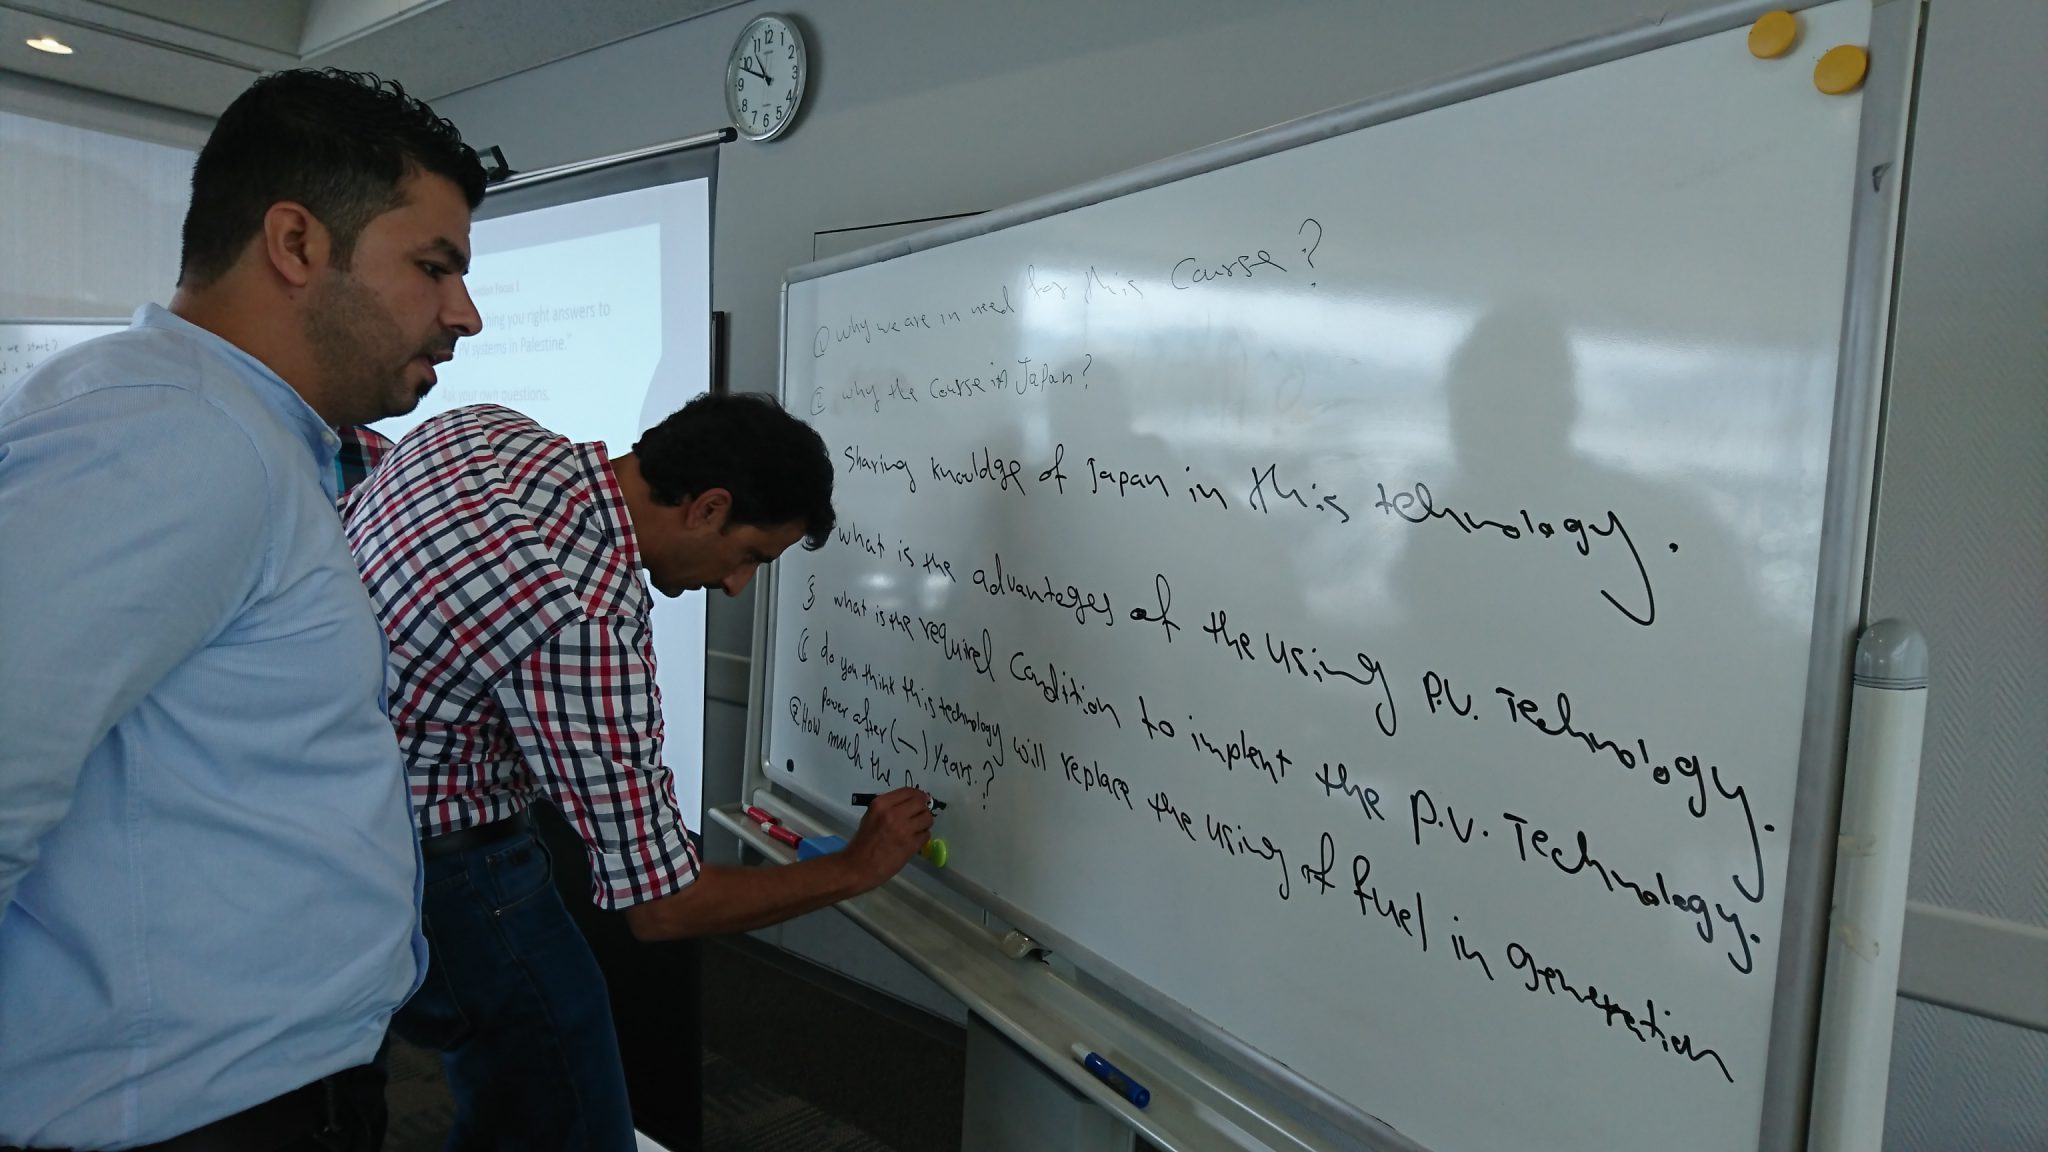 12 1 2 3 4 5 6 7 8 9 10 11
we start?
Focus 1
you right answers to
PV systems in Palestine."
Ask your own questions.
① why we are in need for this course?
② why the course in Japan?
sharing knowldge of Japan in this tehnology.
what is the advanteges of the using P.V. Technology.
5 what is the required Condition to implent the P.V. Technology.
6 do you think this technology will replace the using of fuel in generetion
power after (—) years.?
How much the